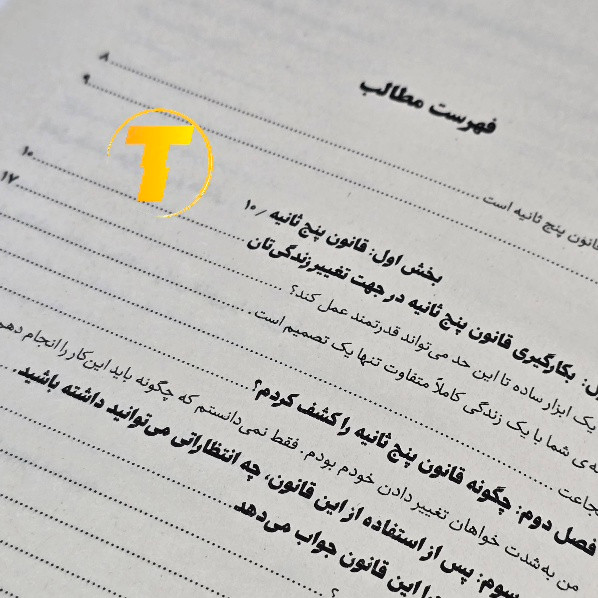 فهرست مطالب
۸
قانون پنج ثانیه است
۹
T
بخش اول: قانون پنج ثانیه / ۱۰
بکارگیری قانون پنج ثانیه در جهت تغییر زندگی‌تان
۱۰
یک ابزار ساده تا این حد می‌تواند قدرتمند عمل کند؟
۱۷
شما با یک زندگی کاملاً متفاوت تنها یک تصمیم است
فصل دوم: چگونه قانون پنج ثانیه را کشف کردم؟
من به‌شدت خواهان تغییر دادن خودم بودم. فقط نمی‌دانستم که چگونه باید این‌کار را انجام
سوم: پس از استفاده از این قانون، چه انتظاراتی می‌توانید داشته باشید
این قانون جواب می‌دهد
؟